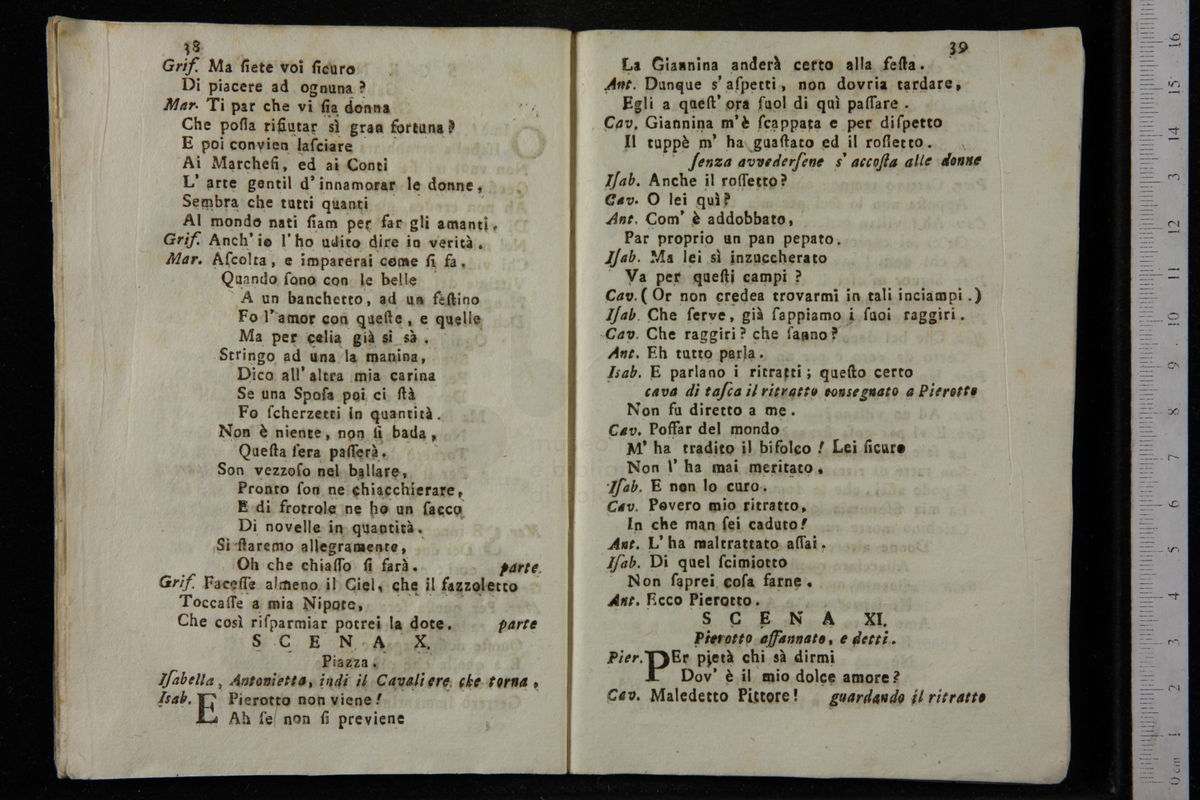 38
Grif. Ma ſiete voi ſicuro
Di piacere ad ognuna ?
Mar. Ti par che vi ſia donna
Che poſſa rifiutar sì gran fortuna?
E poi convien laſciare
Ai Marcheſi, ed ai Conti
L' arte gentil d' innamorar le donne,
Sembra che tutti quanti
Al mondo nati ſiam per far gli amanti.
Grif. Anch' io l' ho udito dire in verità.
Mar. Aſcolta, e imparerai come ſi fa.
Quando ſono con le belle
A un banchetto, ad un feſtino
Fo l' amor con queſte, e quelle
Ma per celia già si sà .
Stringo ad una la manina,
Dico all' altra mia carina
Se una Spoſa poi ci ſtà
Fo ſcherzetti in quantità.
Non è niente, non ſi bada,
Queſta ſera paſſerà.
Son vezzoſo nel ballare,
Pronto ſon ne chiacchierare,
E di frotrole ne ho un ſacco
Di novelle in quantità.
Si ſtaremo allegramente,
Oh che chiaſſo ſi farà. parte.
Grif. Faceſſe almeno il Ciel, che il fazzoletto
Toccaſſe a mia Nipote,
Che così riſparmiar potrei la dote. parte
SCENA X.
Piazza.
Iſabella, Antonietta, indi il Cavaliere che torna.
Isab. E Pierotto non viene!
Ah ſe non ſi previene
39
La Giannina anderà certo alla feſta.
Ant. Dunque s' aſpetti, non dovria tardare,
Egli a queſt' ora ſuol di quì paſſare.
Cav. Giannina m'è ſcappata e per diſpetto
Il tuppè m' ha guaſtato ed il roſſetto.
ſenza avvederſene s' accoſta alle donne
Iſab. Anche il roſſetto?
Cav. O lei quì?
Ant. Com' è addobbato,
Par proprio un pan pepato.
Iſab. Ma lei sì inzuccherato
Va per queſti campi ?
Cav. ( Or non credea trovarmi in tali inciampi.)
Iſab. Che ſerve, già ſappiamo i ſuoi raggiri.
Cav. Che raggiri? che ſanno?
Ant. Eh tutto parla.
Isab. E parlano i ritratti; queſto certo
cava di taſca il ritratto conſegnato a Pierotto
Non fu diretto a me.
Cav. Poſſar del mondo
M' ha tradito il bifolco ! Lei ſicuro
Non l' ha mai meritato.
Iſab. E non lo curo.
Cav. Povero mio ritratto,
In che man ſei caduto!
Ant. L' ha maltrattato aſſai.
Iſab. Di quel ſcimiotto
Non ſaprei coſa farne.
Ant. Ecco Pierotto.
SCENA XI.
Pierotto affannato, e detti.
Pier. PEr pietà chi sà dirmi
Dov' è il mio dolce amore?
Cav. Maledetto Pittore! guardando il ritratto